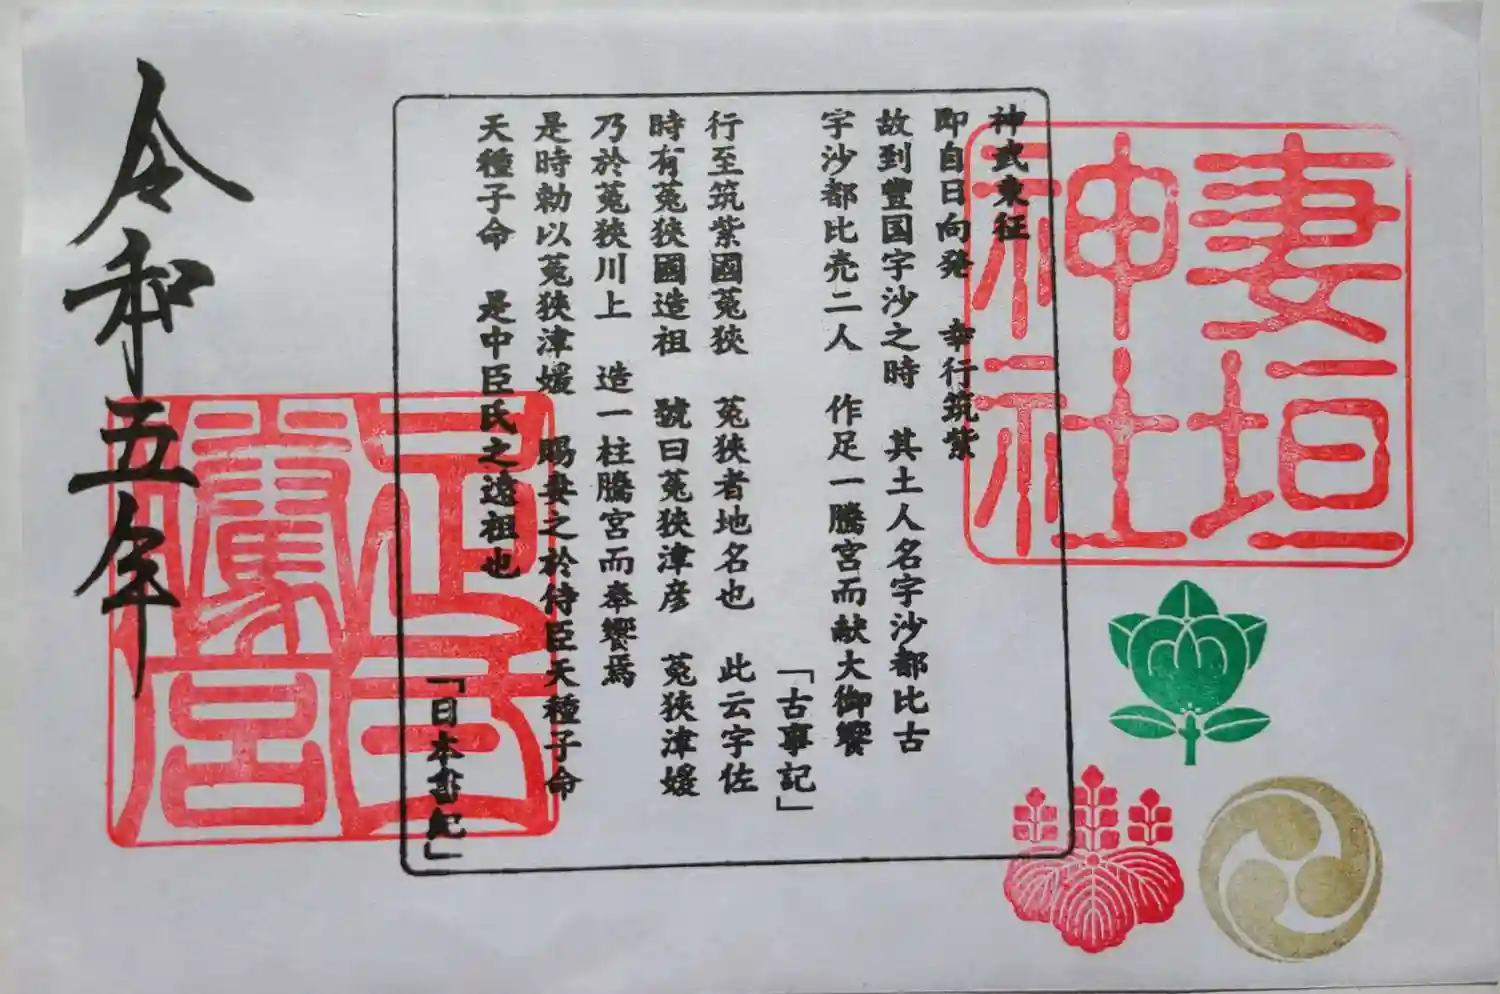 妻垣
神社
神武東征
即自日向発　幸行筑紫
故到豐国宇沙之時　其土人名宇沙都比古
宇沙都比売二人　作足一騰宮而献大御饗
「古事記」
行至筑紫國菟狹　菟狹者地名也　此云宇佐
時有菟狹國造祖　號曰菟狹津彦　菟狹津媛
乃於菟狹川上　造一柱騰宮而奉饗焉
是時勅以菟狹津媛　賜妻之於侍臣天種子命
天種子命　是中臣氏之遠祖也
「日本書紀」
足一
騰宮
令和五年